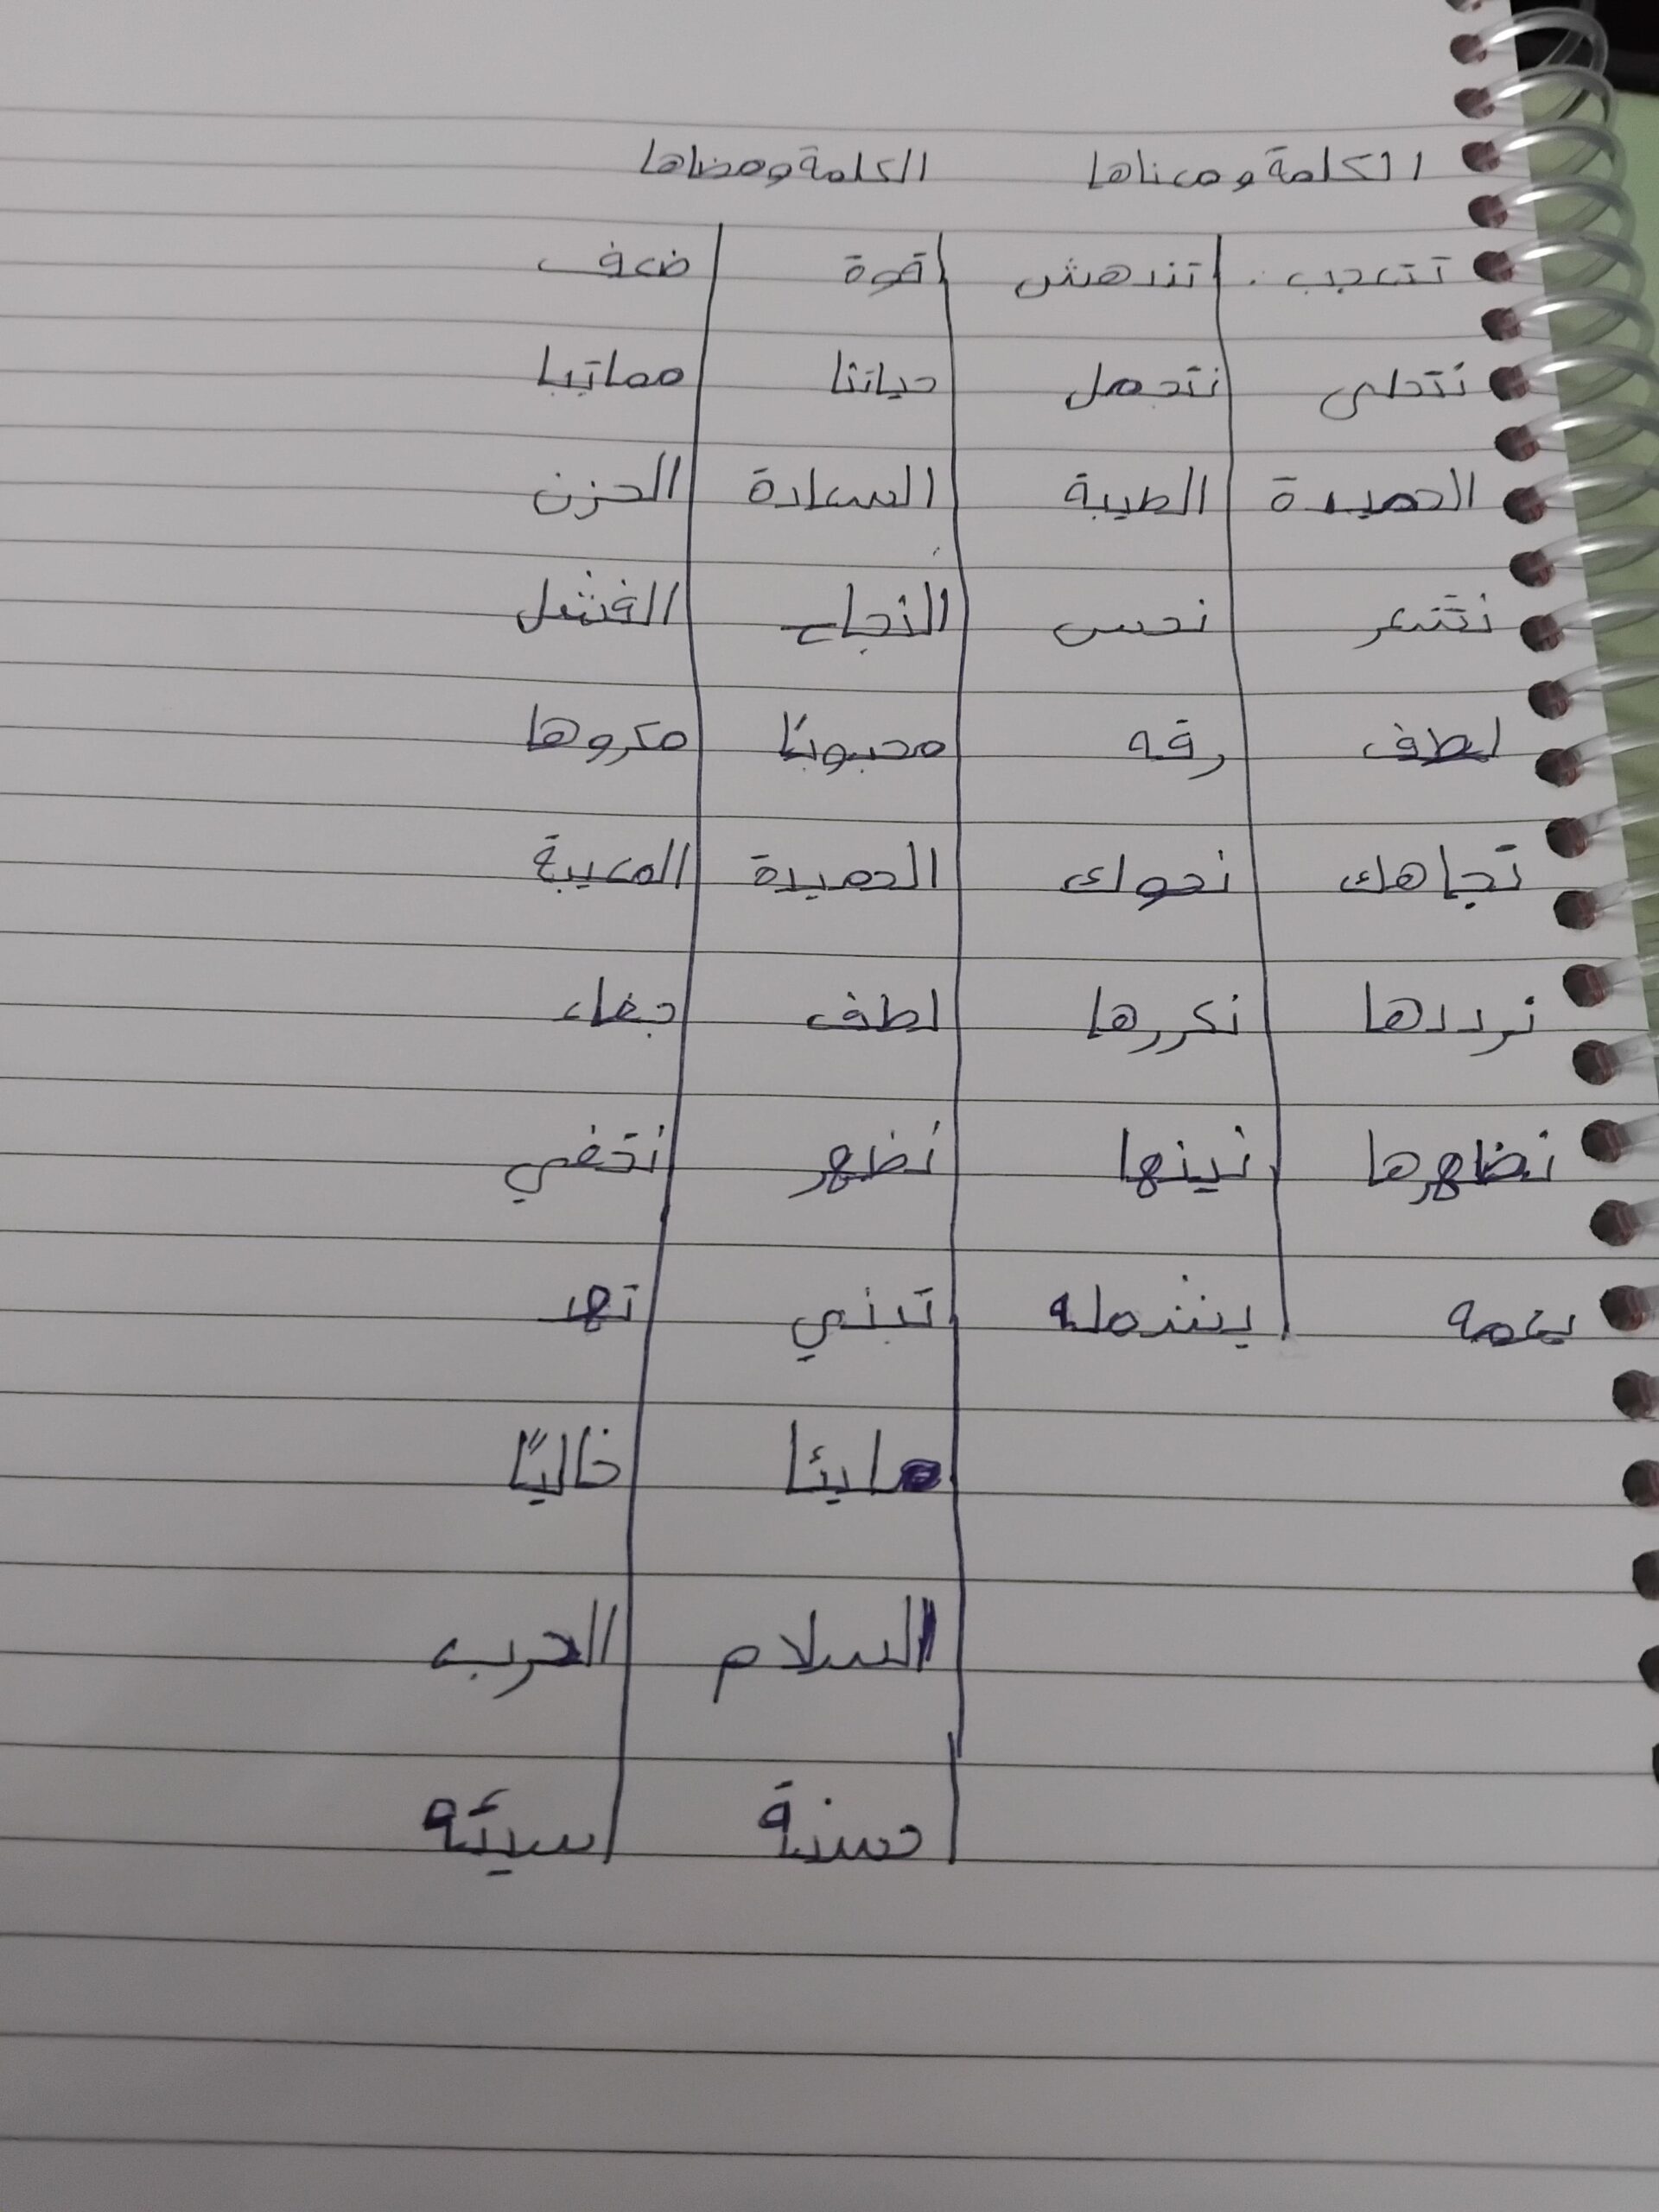 الكلمة ومعناها الكلمة ومضاها
تتعجب تندهش قوة ضعف
نتحلى نتجمل حياتنا مماتنا
الحميدة الطيبة السعادة الحزن
نشعر نحس النجاح الفشل
لطف رقه محبوبًا مكروها
تجاهك نحوك الحميدة المعيبة
نرددها نكررها لطف جفاء
نظهرها نبينها نظهر نخفي
يعمه يشمله تبني تهد
مليئا خاليًا
السلام الحرب
حسنة سيئه